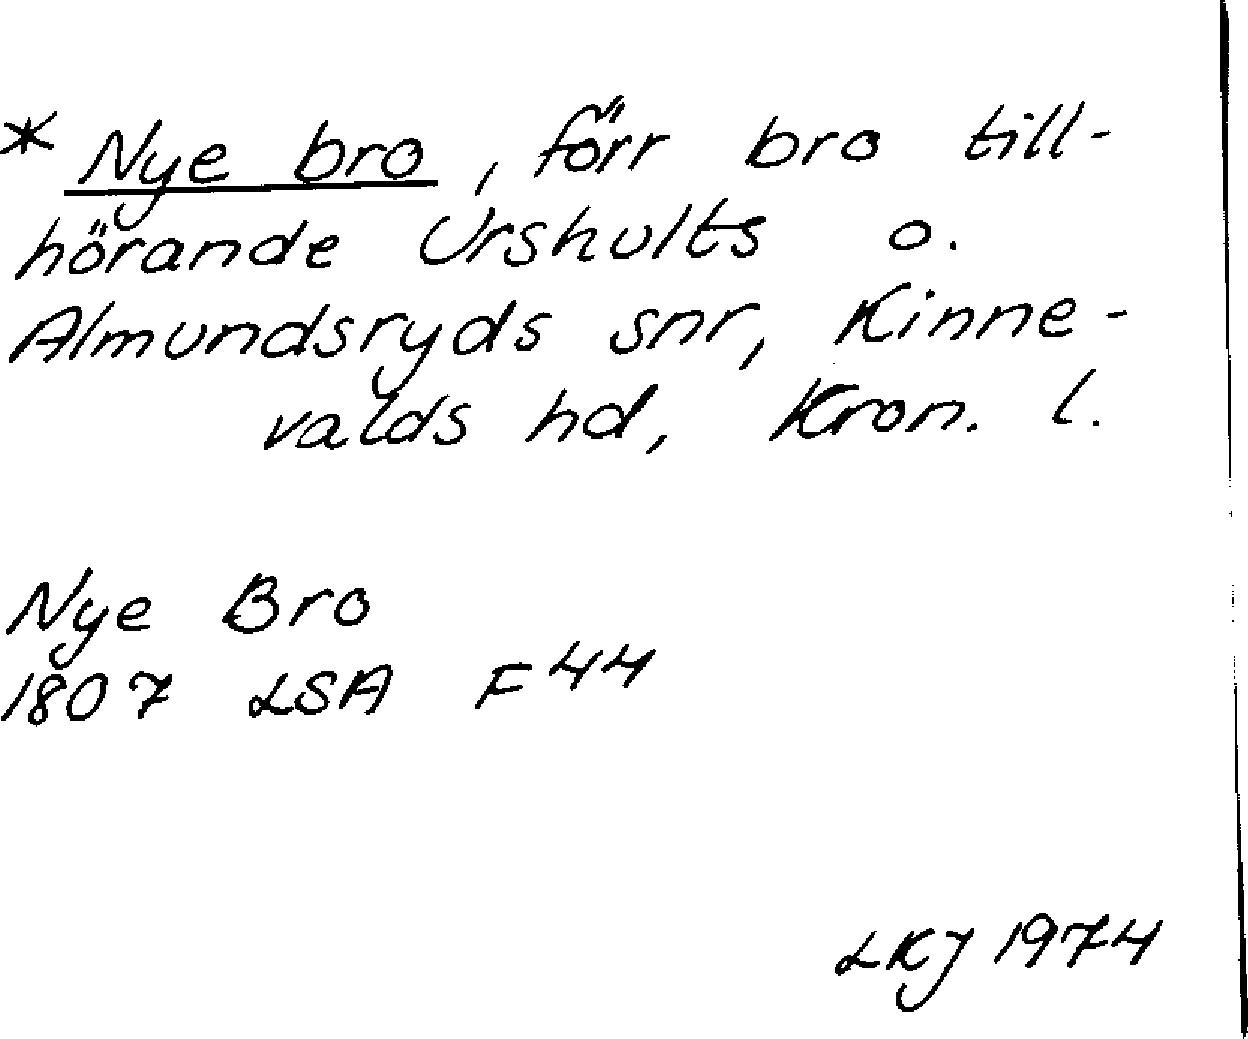 * Nye bro, förr bro till-
hörande Urshults o.
Almundsryds snr, Kinne-
valds hd, Kron. l.
Nye Bro
1807 LSA F 44
LKJ 1974